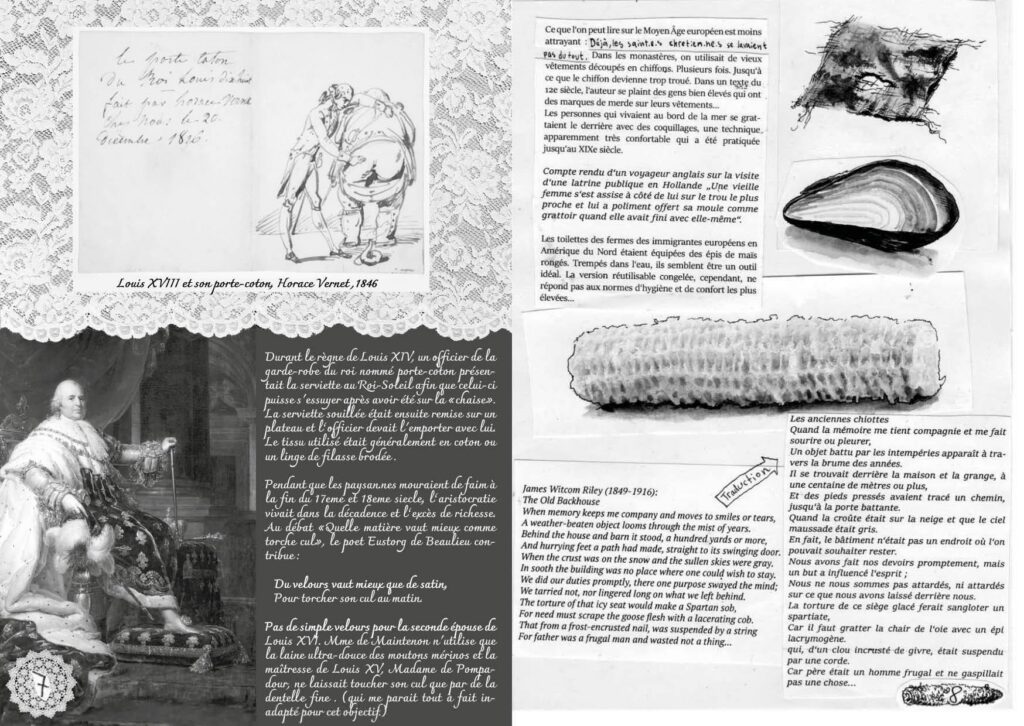 Le porte coton
Du Roi Louis
fait par horace
le 20
1826.
Louis XVIII et son porte-coton, Horace Vernet ,1846
Durant le règne de Louis XIV, un officier de la
garde-robe du roi nommé porte-coton présen-
tait la serviette au Roi-Soleil afin que celui-ci
puisse s'essuyer après avoir été sur la «chaise».
La serviette souillée était ensuite remise sur un
plateau et l'officier devait l'emporter avec lui.
Le tissu utilisé était généralement en coton ou
un linge de filasse brodée .
Pendant que les paysannes mouraient de faim à
la fin du 17eme et 18eme siecle, l'aristocratie
vivait dans la décadence et l'excès de richesse.
Au débat «Quelle matière vaut mieux comme
torche cul», le poet Eustorg de Beaulieu con-
tribue :
Du velours vaut mieux que de satin,
Pour torcher son cul au matin.
Pas de simple velours pour la seconde épouse de
Louis XVI. Mme de Maintenon n'utilise que
la laine ultra-douce des moutons mérinos et la
maîtresse de Louis XV, Madame de Pompa-
dour, ne laissait toucher son cul que par de la
dentelle fine . (qui me parait tout à fait in-
adapté pour cet objectif)
7
Ce que l'on peut lire sur le Moyen Âge européen est moins
attrayant : Déjà, les saint.e.s chretien.ne.s se lavaient
pas du tout. Dans les monastères, on utilisait de vieux
vêtements découpés en chiffons. Plusieurs fois. Jusqu'à
ce que le chiffon devienne trop troué. Dans un texte du
12e siècle, l'auteur se plaint des gens bien élevés qui ont
des marques de merde sur leurs vêtements...
Les personnes qui vivaient au bord de la mer se grat-
taient le derrière avec des coquillages, une technique
apparemment très confortable qui a été pratiquée
jusqu'au XIXe siècle.
Compte rendu d'un voyageur anglais sur la visite
d'une latrine publique en Hollande „Une vieille
femme s'est assise à côté de lui sur le trou le plus
proche et lui a poliment offert sa moule comme
grattoir quand elle avait fini avec elle-même“.
Les toilettes des fermes des immigrantes européens en
Amérique du Nord étaient équipées des épis de maïs
rongés. Trempés dans l'eau, ils semblent être un outil
idéal. La version réutilisable congelée, cependant, ne
répond pas aux normes d'hygiène et de confort les plus
élevées...
James Witcom Riley (1849-1916):
The Old Backhouse
When memory keeps me company and moves to smiles or tears,
A weather-beaten object looms through the mist of years.
Behind the house and barn it stood, a hundred yards or more,
And hurrying feet a path had made, straight to its swinging door.
When the crust was on the snow and the sullen skies were gray.
In sooth the building was no place where one could wish to stay.
We did our duties promptly, there one purpose swayed the mind;
We tarried not, nor lingered long on what we left behind.
The torture of that icy seat would make a Spartan sob,
For need must scrape the goose flesh with a lacerating cob.
That from a frost-encrusted nail, was suspended by a string
For father was a frugal man and wasted not a thing...
Traduction
Les anciennes chiottes
Quand la mémoire me tient compagnie et me fait
sourire ou pleurer,
Un objet battu par les intempéries apparaît à tra-
vers la brume des années.
Il se trouvait derrière la maison et la grange, à
une centaine de mètres ou plus,
Et des pieds pressés avaient tracé un chemin,
jusqu'à la porte battante.
Quand la croûte était sur la neige et que le ciel
maussade était gris.
En fait, le bâtiment n'était pas un endroit où l'on
pouvait souhaiter rester.
Nous avons fait nos devoirs promptement, mais
un but a influencé l'esprit ;
Nous ne nous sommes pas attardés, ni attardés
sur ce que nous avons laissé derrière nous.
La torture de ce siège glacé ferait sangloter un
spartiate,
Car il faut gratter la chair de l'oie avec un épi
lacrymogène.
qui, d'un clou incrusté de givre, était suspendu
par une corde.
Car père était un homme frugal et ne gaspillait
pas une chose...
8